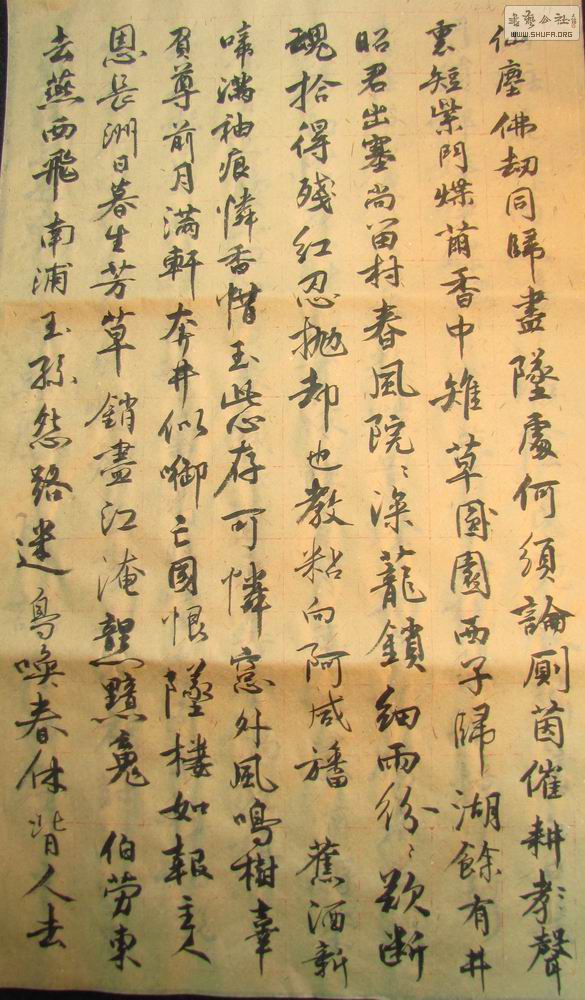 書藝公社
WWW.SHUFA.ORG
仙塵佛劫同歸盡墜處何須論厠茵催耕聲
裏短柴門蝶香中雉草園西子歸湖餘有井
昭君出塞尚留村春風院〻深蘢鎖細雨紛〻欲斷
魂拾得殘紅忍抛却也教粘向阿咸旛 蕉酒新
啼滿袖痕憐香惜玉存可憐窓外風鳴樹辜
負尊前月滿軒奔井似啣亡國恨墜樓如報主人
恩長洲日暮生芳草銷盡江淹黯黯魂 伯勞東
去燕西飛南浦王孫怨路迷鳥喚春休背人去